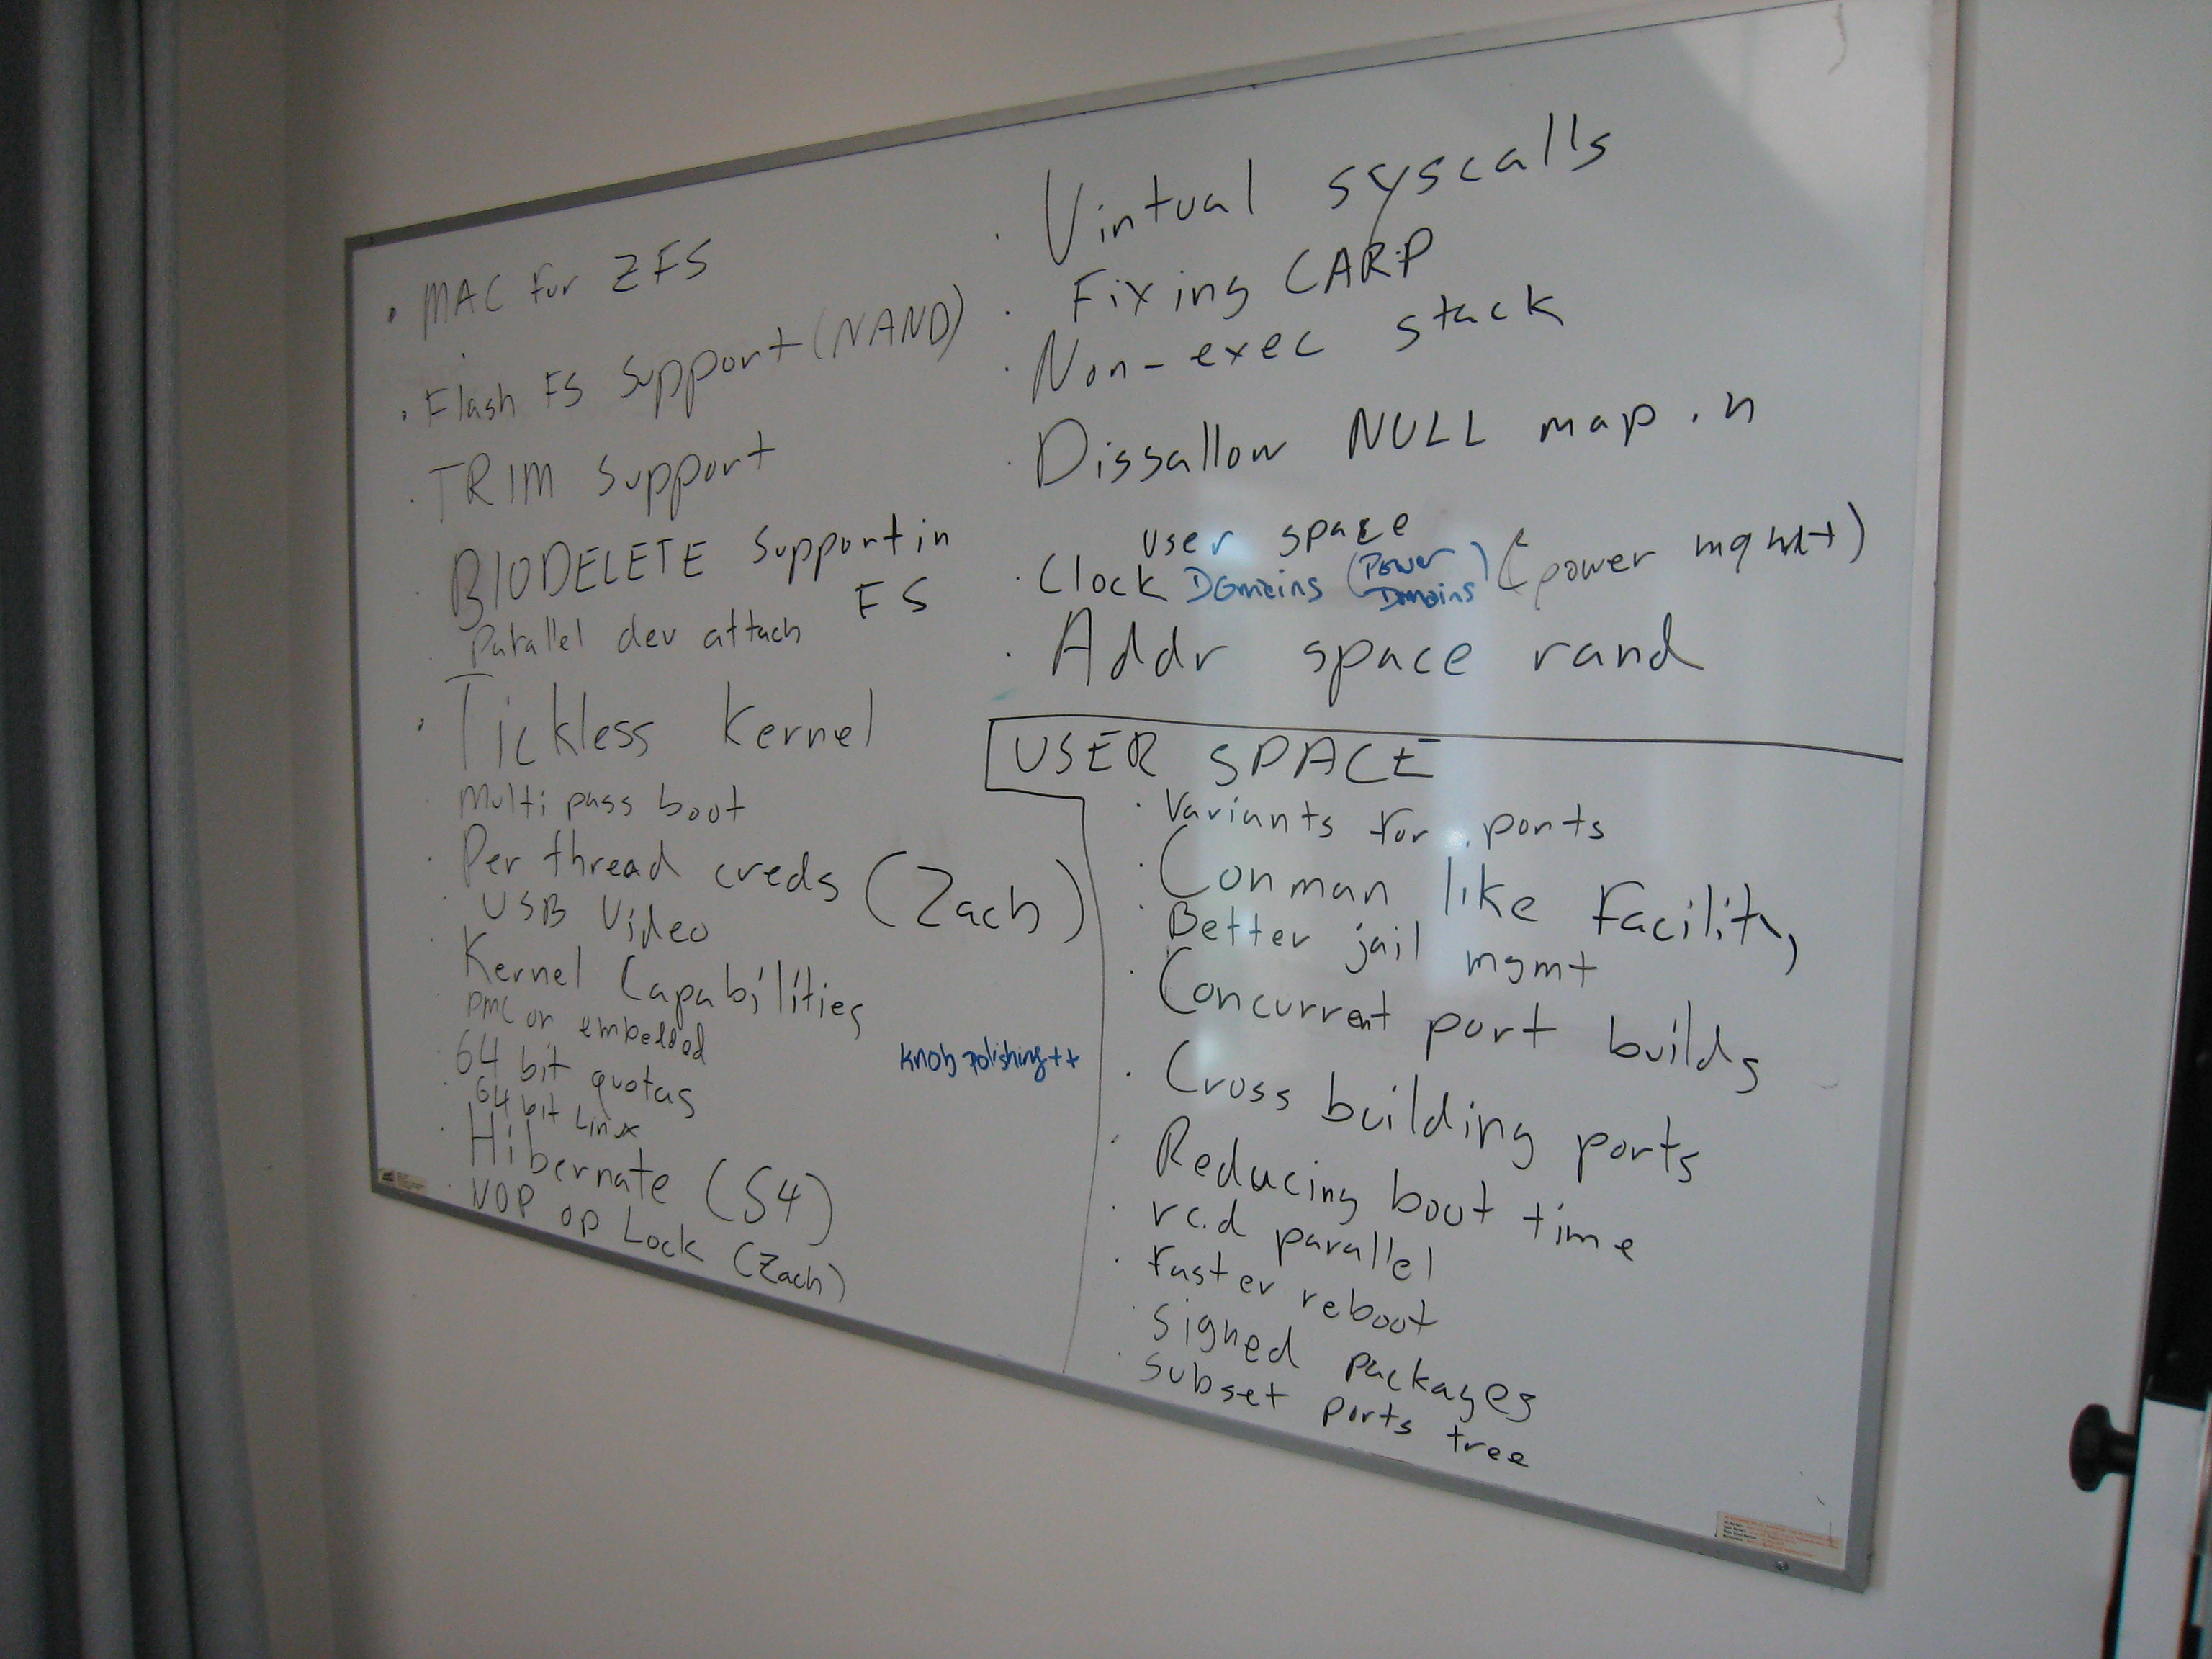 · MAC for ZFS
· Flash FS Support (NAND)
· TRIM Support
· BIODELETE Support in
FS
· Parallel dev attach
· Tickless Kernel
· Multi pass boot
· Per thread creds (Zach)
· USB Video
· Kernel Capabilities
· PMC on embedded
· 64 bit quotas
· 64 bit Linx
· Hibernate (S4)
NOP op Lock (Zach)
knob polishing++
· Virtual syscalls
· Fixing CARP
· Non-exec stack
· Dissallow NULL map in
user space
· Clock Domains (Power Domains) (power mgmt)
· Addr space rand
USER SPACE
· Variants for ports
· Conman like facility
· Better jail mgmt
· Concurrent port builds
· Cross building ports
· Reducing boot time
· rc.d parallel
· Faster reboot
· Signed packages
· Subset ports tree